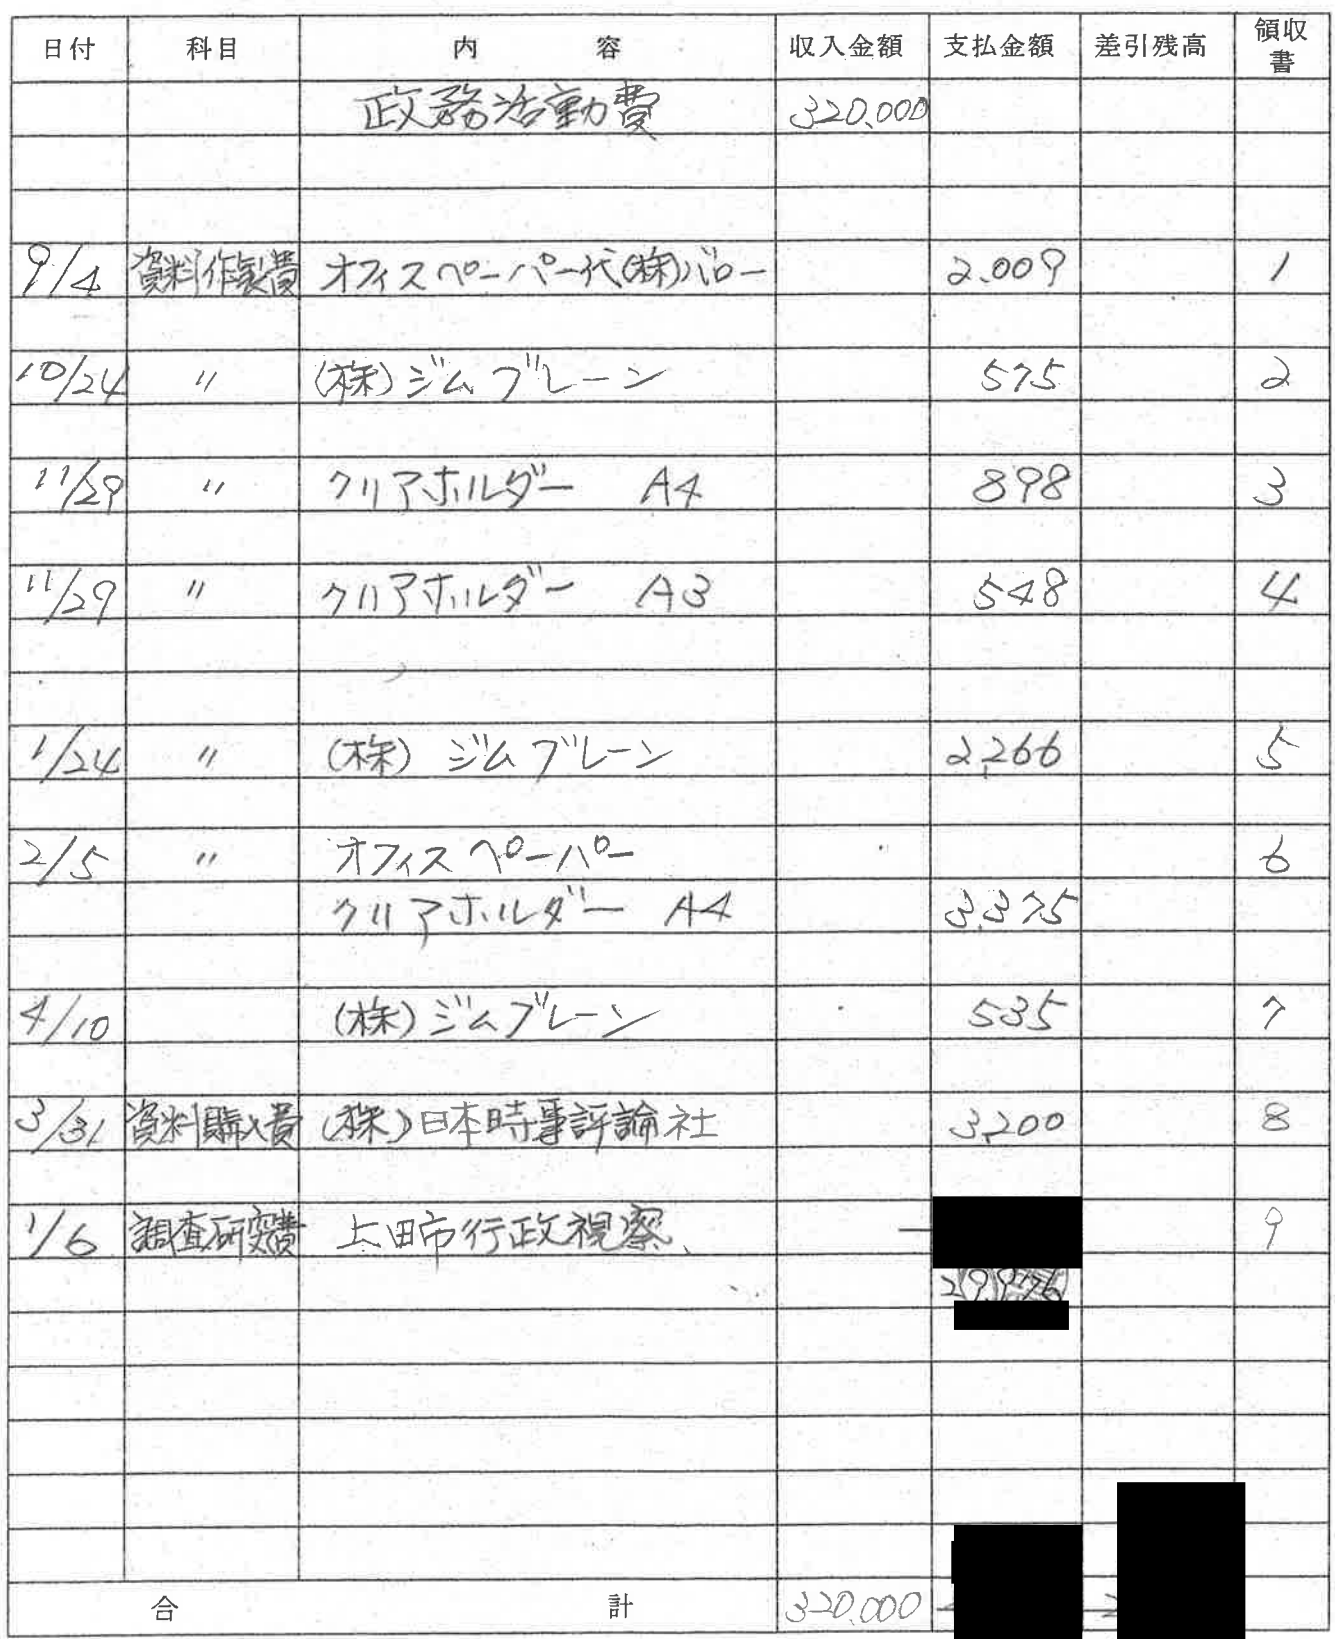 日付 科目 内容 収入金額 支払金額 差引残高 領収書
政務活動費 320,000
9/4 資料作製費 オフィスペーパー代(株)バロー 2,009 1
10/24 〃 (株)ジムブレーン 575 2
11/29 〃 クリアホルダー A4 898 3
11/29 〃 クリアホルダー A3 548 4
1/24 〃 (株)ジムブレーン 2,266 5
2/5 〃 オフィスペーパー 6
クリアホルダー A4 3,375
4/10 (株)ジムブレーン 535 7
3/31 資料購入費 (株)日本時事評論社 3,200 8
1/6 調査研究費 上田市行政視察 9
合計 320,000